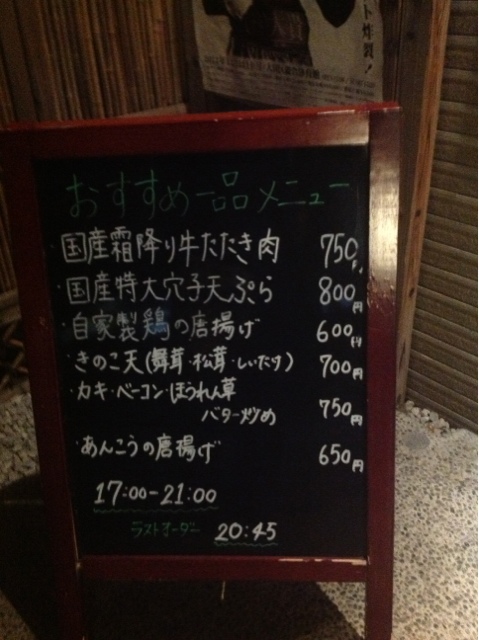 ト炸裂!
おすすめ一品メニュー
・国産霜降り牛たたき肉 750円
・国産特大穴子天ぷら 800円
・自家製鶏の唐揚げ 600円
・きのこ天(舞茸・松茸・しいたけ) 700円
・カキ・ベーコン・ほうれん草
バター炒め 750円
・あんこうの唐揚げ 650円
17:00-21:00
ラストオーダー 20:45